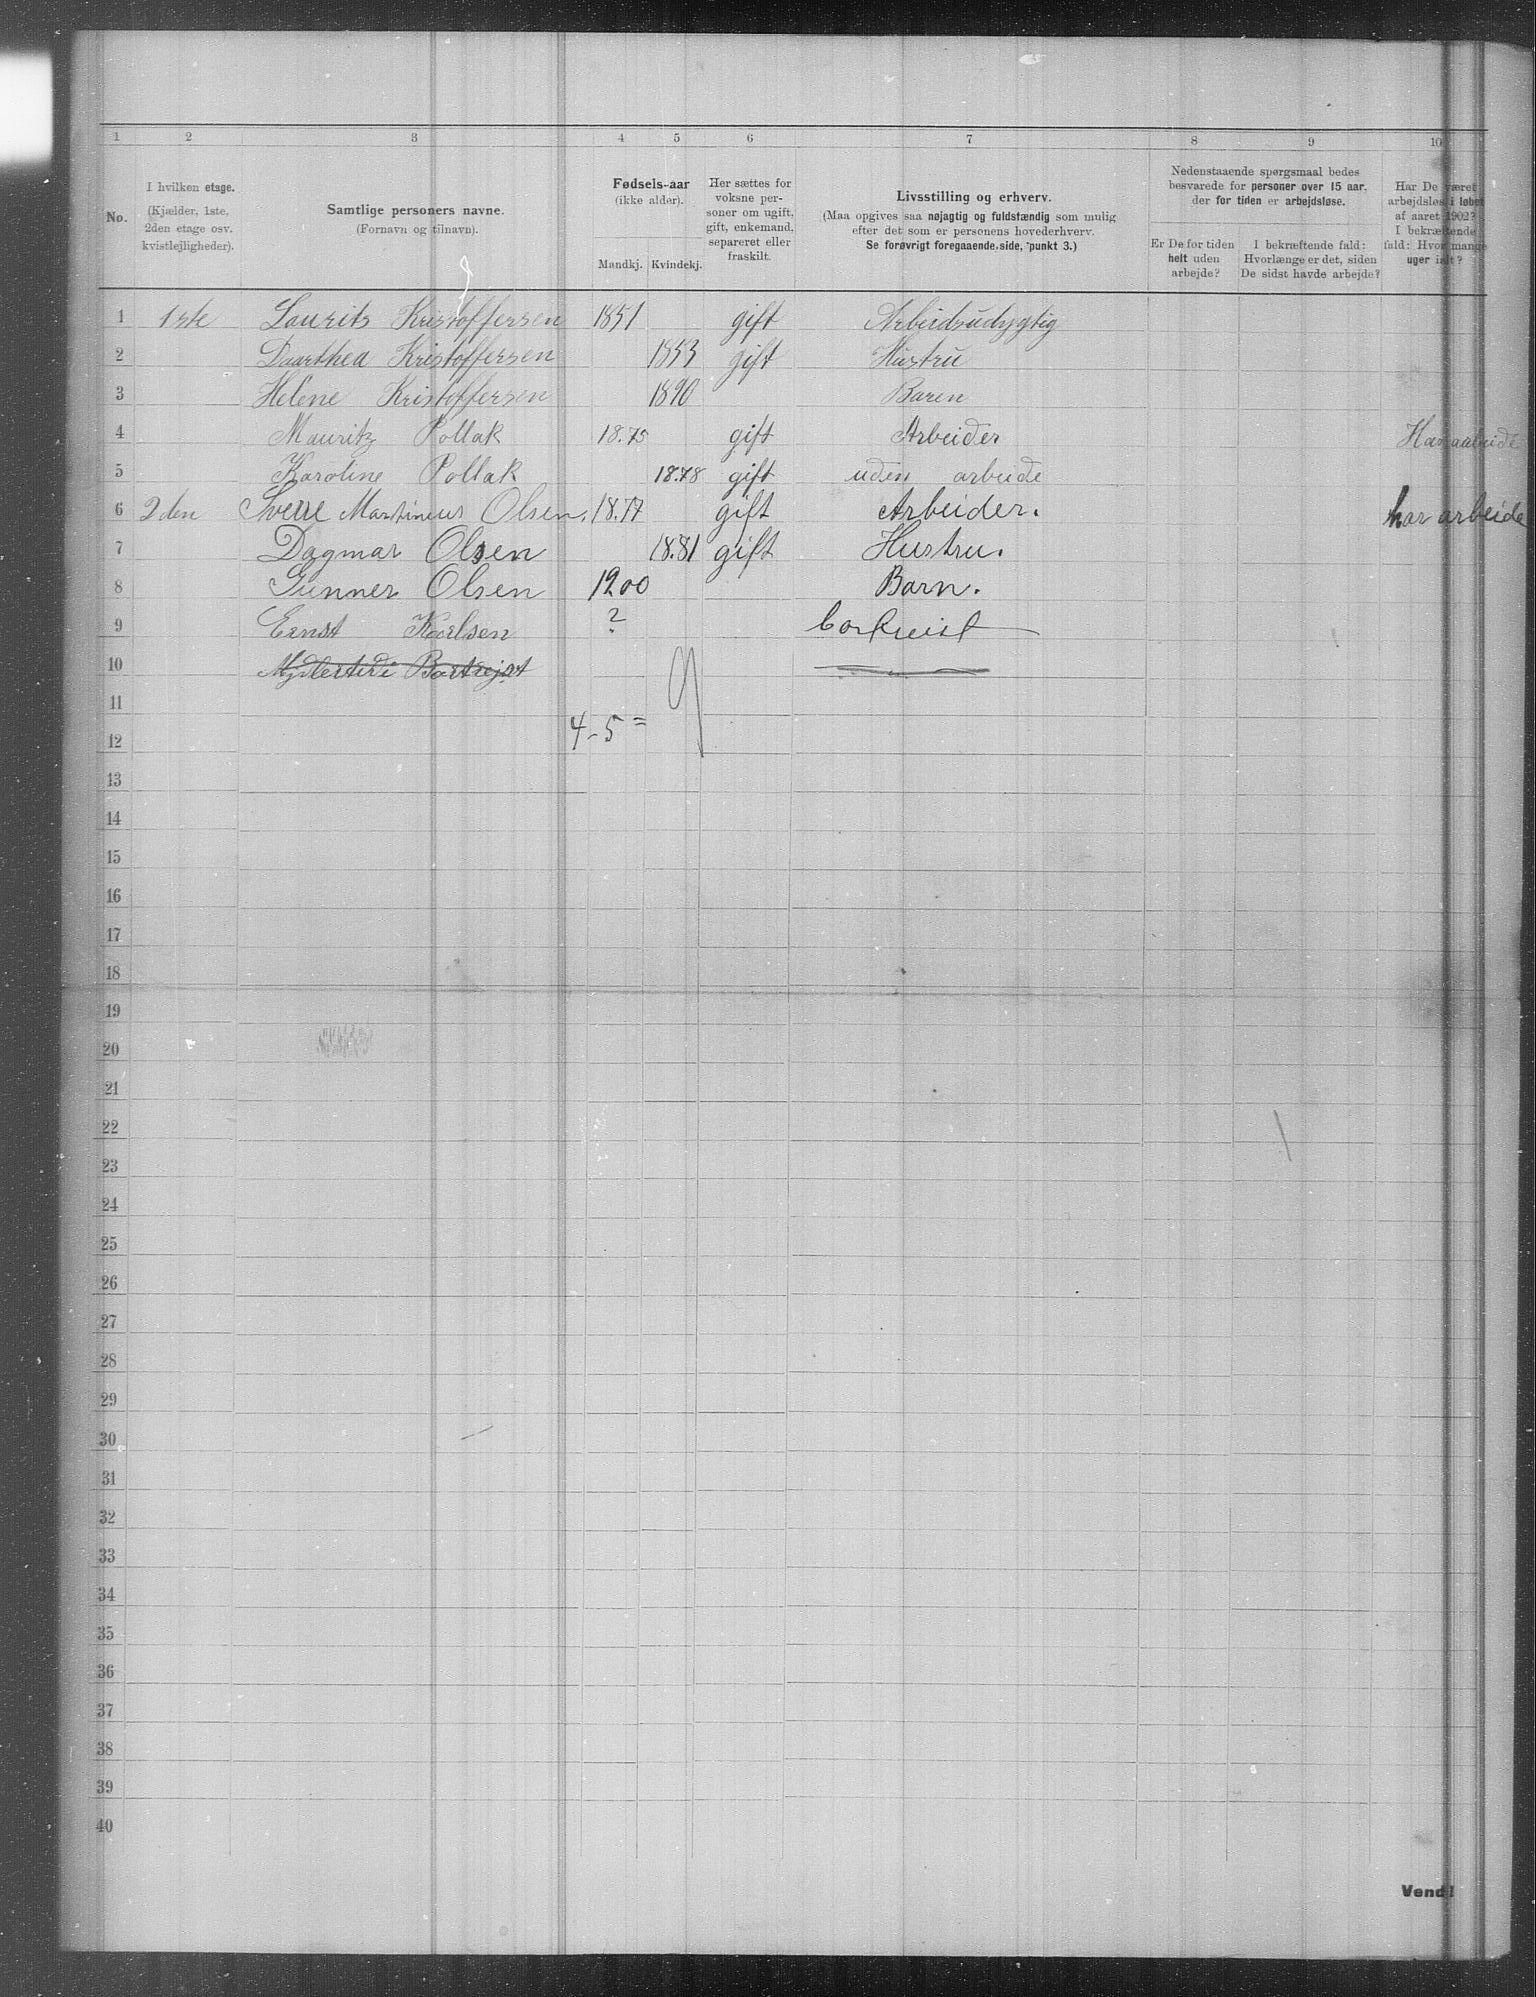 1 2 3 4 5 6 7 8 9 10
No.
I hvilken etage.
(Kjælder, 1ste,
2den etage osv.
kvistlejligheder).
Samtlige personers navne.
(Fornavn og tilnavn).
Fødsels-aar
(ikke alder).
Mandkj. Kvindekj.
Her sættes for
voksne per-
soner om ugift,
gift, enkemand,
separeret eller
fraskilt.
Livsstilling og erhverv.
(Maa opgives saa nøjagtig og fuldstændig som mulig
efter det som er personens hovederhverv.
Se forøvrigt foregaaende side, punkt 3.)
Nedenstaaende spørgsmaal bedes
besvarede for personer over 15 aar,
der for tiden er arbejdsløse.
Er De for tiden
helt uden
arbejde?
I bekræftende fald:
Hvorlænge er det, siden
De sidst havde arbejde?
Har De været
arbejdsløs i løbet
af aaret 1902?
I bekræftende
fald: Hvor mange
uger ialt?
1 1ste Laurits Kristoffersen 1851 gift Arbeidsudygtig
2 Daarthea Kristoffersen 1853 gift Hustru
3 Helene Kristoffersen 1890 Baren
4 Mauritz Pollak 18.75 gift Arbeider Har aabeide
5 Karoline Pollak 18.78 gift uden arbeide
6 2den Sverre Martineus Olsen. 18.77 gift Arbeider. har arbeide
7 Dagmar Olsen 18.81 gift Hustru.
8 Gunner Olsen 1900 Barn.
9 Ernst Kaelsen ?
10 Mjdlertidi Bortrejst
11
4-5= 9
12
13
14
15
16
17
18
19
20
21
22
23
24
25
26
27
28
29
30
31
32
33
34
35
36
37
38
39
40
Vend!